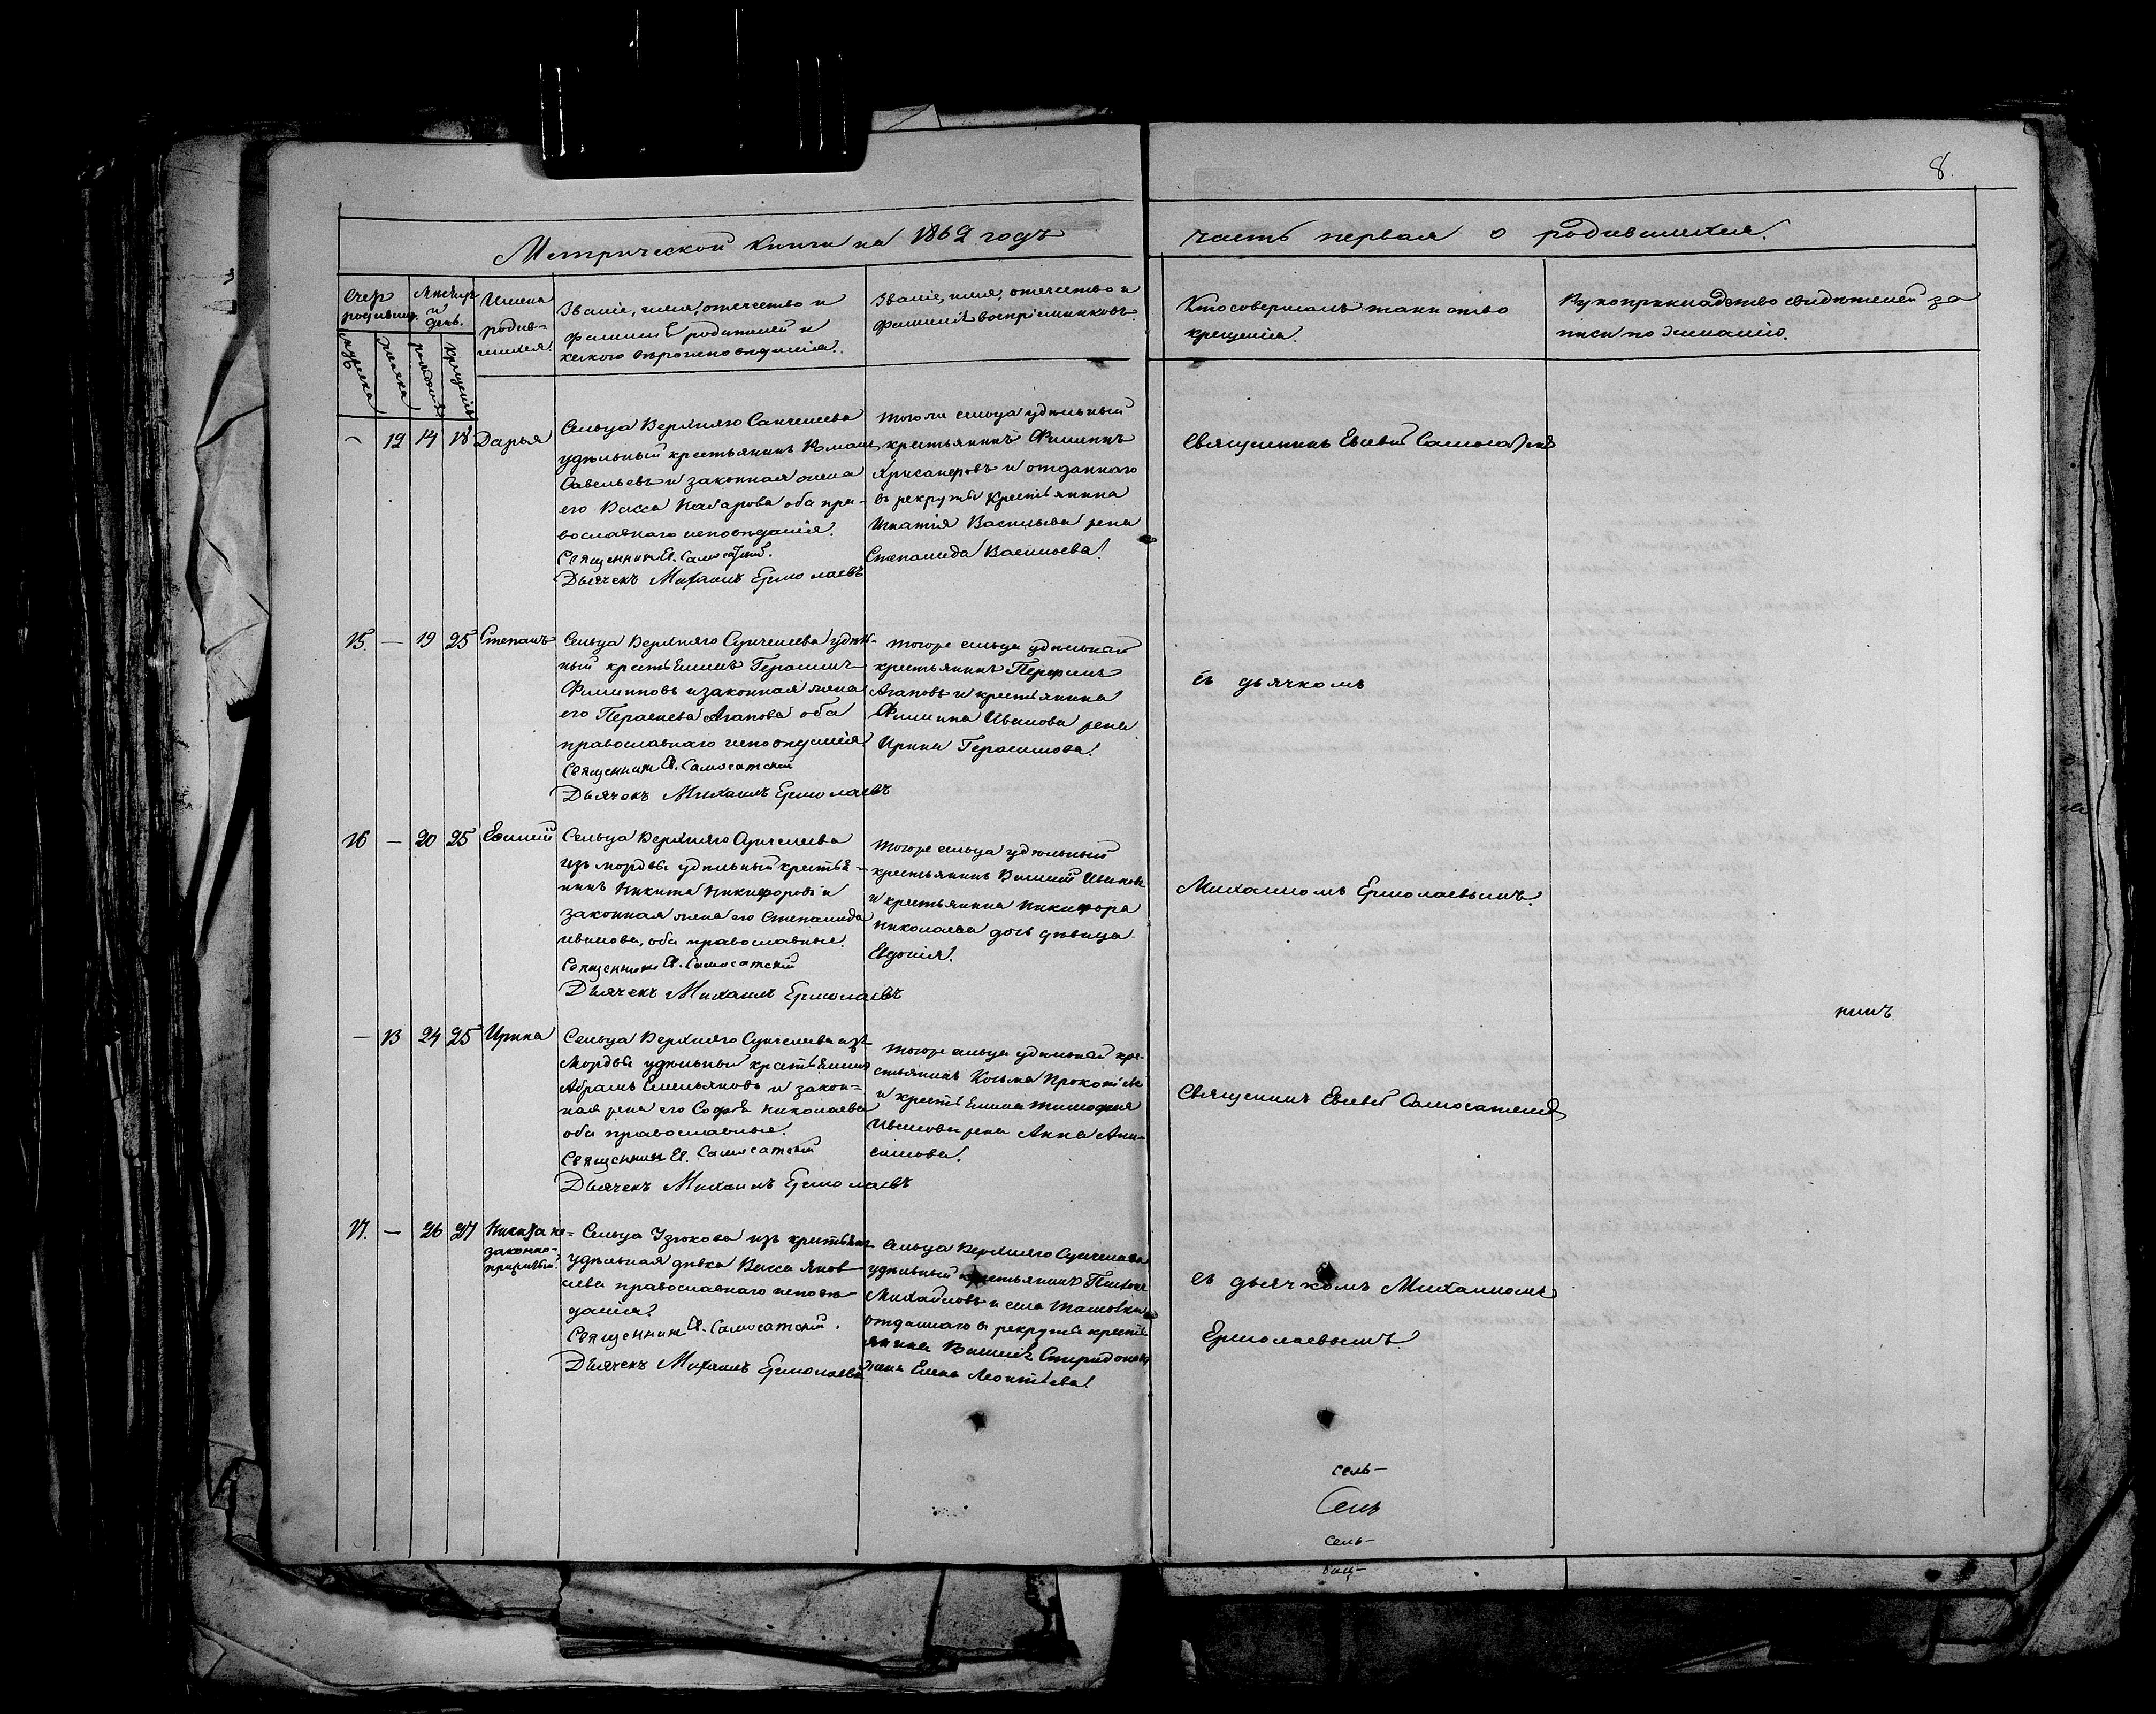 8.
Метрической книги на 1862 годъ
часть первая о родившихся.
Счетъ родивших.
Мѣсяцъ и день.
Имена родив-
шихся.
Званіе, имя, отечество и
фамилія родителей и
какого вѣроисповѣданія.
Званіе, имя, отечество и
фамилія воспріемниковъ.
Кто совершалъ таинство
крещенія.
Рукоприкладство свидѣтелей за
писи по желанію.
мужеска
женска
рожденія
крещенія
– 12 14 18 Дарья
Сельца Верхняго
удѣльный крестьянинъ Романъ
Савельевъ и законная жена
его Васса Назарова оба пра-
вославнаго исповѣданія.
Священникъ Ев. Самосатскій.
Дьячекъ Михаилъ Ермолаевъ
тогоже сельца удѣльный
крестьянинъ Филиппъ
Хрисанфовъ и отданнаго
въ рекруты крестьянина
Игнатія Васильева жена
Степанида Васильева.
Священникъ Евсевій Самосатскій
15. – 19 25 Степанъ
Сельца Верхняго Сунчелеева удѣль-
ный крестьянинъ Герасимъ
Филипповъ и законная жена
его Парасковія Агапова оба
православнаго исповѣданія
Священникъ Ев. Самосатскій
Дьячекъ Михаилъ Ермолаевъ
тогоже сельца удѣльный
крестьянинъ Перфилъ
Агаповъ и крестьянина
Филиппа Иванова жена
Ирина Герасимова.
съ дьячкомъ
16 – 20 25 Евсигній
Сельца Верхняго Сунчелеева
изъ мордвы удѣльный крестья-
нинъ Никита Никифоровъ и
законная жена его Степанида
Иванова, оба православные.
Священникъ Ев. Самосатскій
Дьячекъ Михаилъ Ермолаевъ
тогоже сельца удѣльный
крестьянинъ Василій Ивановъ
и крестьянина Никифора
Николаева дочь дѣвица
Евдокія.
Михаиломъ Ермолаевымъ.
нинъ
– 13 24 25 Ирина
Сельца Верхняго Сунчелеева изъ
Мордвы удѣльный крестьянинъ
Абрамъ Емельяновъ и закон-
ная жена его Софья Николаева
оба православные.
Священникъ Ев. Самосатскій
Дьячекъ Михаилъ Ермолаевъ
тогоже сельца удѣльный кре-
стьянинъ Косьма Прокопьевъ
и крестьянина Тимофея
Иванова жена Анна Ани-
симова.
Священникъ Евсевій Самосатскій
17. – 26 27 Никита не-
законно-
прижитый.
Сельца Узюкова изъ крестьянъ
удѣльная дѣвка Васса Яков-
лева православнаго исповѣ-
данія.
Священникъ Ев. Самосатскій.
Дьячекъ Михаилъ Ермолаевъ
Сельца Верхняго Сунчелеева
удѣльный крестьянинъ
Михайловъ и села Ташовки
отданнаго въ рекруты кресть-
янина Василія Спиридонова
жена Елена Леонтьева.
съ дьячкомъ Михаиломъ
Ермолаевымъ.
сель-
Сель
сель-